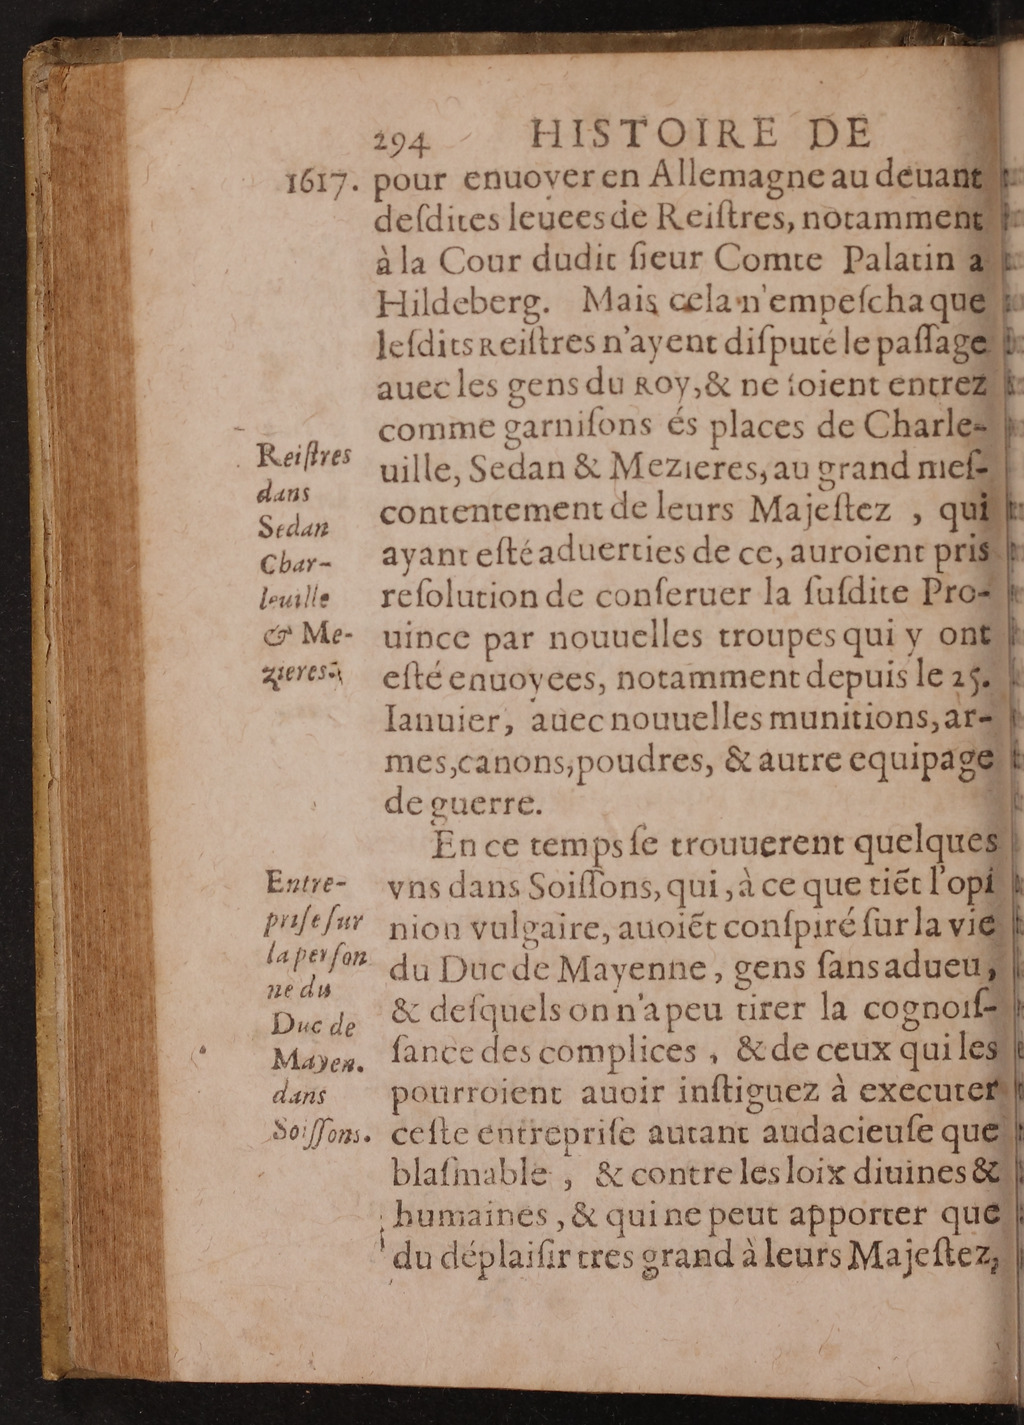 294 HISTOIRE DE
1617. pour enuoyer en Allemagne au deuant
deſdites leuees de Reiſtres, notamment
à la Cour dudit ſieur Comte Palatin a
Hildeberg. Mais cela n'empeſcha que
leſdits Reiſtres n'ayent diſputé le paſſage
auec les gens du Roy, & ne ſoient entrez
comme garniſons és places de Charle-
uille, Sedan & Mezieres, au grand meſ-
contentement de leurs Majeſtez , qui
ayant eſté aduerties de ce, auroient pris
reſolution de conſeruer la ſuſdite Pro-
uince par nouuelles troupes qui y ont
eſté enuoyees, notamment depuis le 25.
Ianuier, auec nouuelles munitions, ar-
mes, canons, poudres, & autre equipage
de guerre.
Reiſtres
dans
Sedan
Char-
leuille
& Me-
zieres.
En ce temps ſe trouuerent quelques
vns dans Soiſſons, qui, à ce que tiẽt l'opi
nion vulgaire, auoiẽt conſpiré ſur la vie
du Duc de Mayenne, gens ſans adueu,
& deſquels on n'a peu tirer la cognoiſ-
ſance des complices , & de ceux qui les
pourroient auoir inſtiguez à executer
ceſte entrepriſe autant audacieuſe que
blaſmable , & contre les loix diuines &
humaines, & qui ne peut apporter que
du déplaiſir tres grand à leurs Majeſtez,
Entre-
priſe ſur
la perſon
ne du
Duc de
Mayen.
dans
Soiſſons.